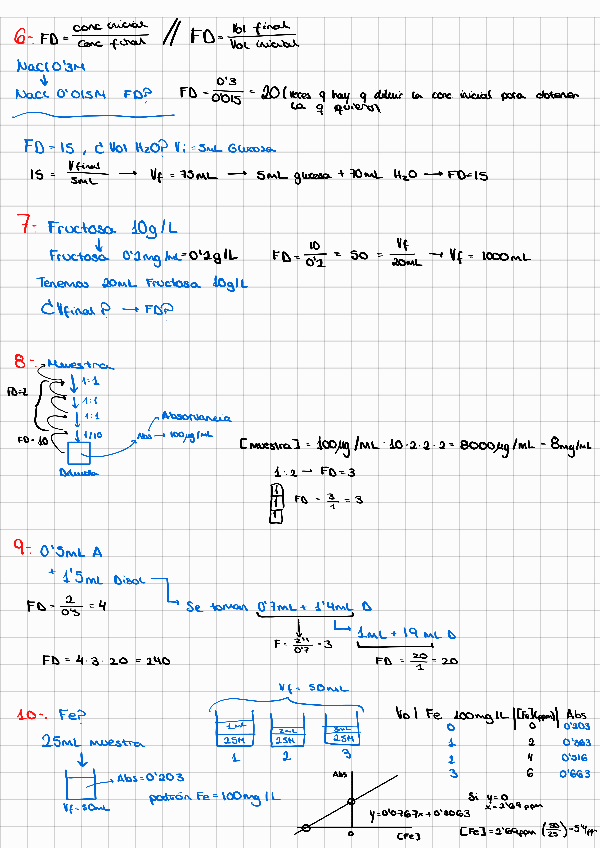 6-. FD = conc inicial / conc final // FD = Vol final / Vol inicial
NaCl 0'3M
↓
NaCl 0'015M FD? FD = 0'3 / 0'015 = 20 (veces q hay q diluir la conc inicial para obtener
la q quiero)
FD = 15, ¿Vol H2O? Vi = 5mL Glucosa
15 = Vfinal / 5mL → Vf = 75mL → 5mL glucosa + 70mL H2O → FD=15
7- Fructosa 10g/L
↓
Fructosa 0'2mg/mL = 0'2g/L FD = 10 / 0'2 = 50 = Vf / 20mL → Vf = 1000mL
Tenemos 20mL Fructosa 10g/L
¿Vfinal? → FD?
8-. Muestra
FD=2 1:1
1:1
1:1
FD=10 1/10
Absorvancia
Abs → 100µg/mL
Diluida
[muestra] = 100µg/mL · 10·2·2·2 = 8000µg/mL = 8mg/mL
1:2 → FD=3
1 1 1 FD = 3 / 1 = 3
9-. 0'5mL A
+ 1'5mL Disol
FD = 2 / 0'5 = 4
Se toman 0'7mL + 1'4mL D
F = 2'1 / 0'7 = 3
1mL + 19mL D
FD = 4·3·20 = 240
FD = 20 / 1 = 20
10-. Fe?
25mL muestra
Abs = 0'203
Vf = 50mL
patrón Fe = 100mg/L
Vf = 50mL
1mL 2mL 3mL
25M 25M 25M
1 2 3
Vol Fe 100mg/L | [Fe](ppm) | Abs
0 0 0'203
1 2 0'363
2 4 0'516
3 6 0'663
Abs
y=0'0767x + 0'2063
0 [Fe]
Si y=0
x=-2'69ppm
[Fe] = 2'69ppm (50/25) = 5'4ppm